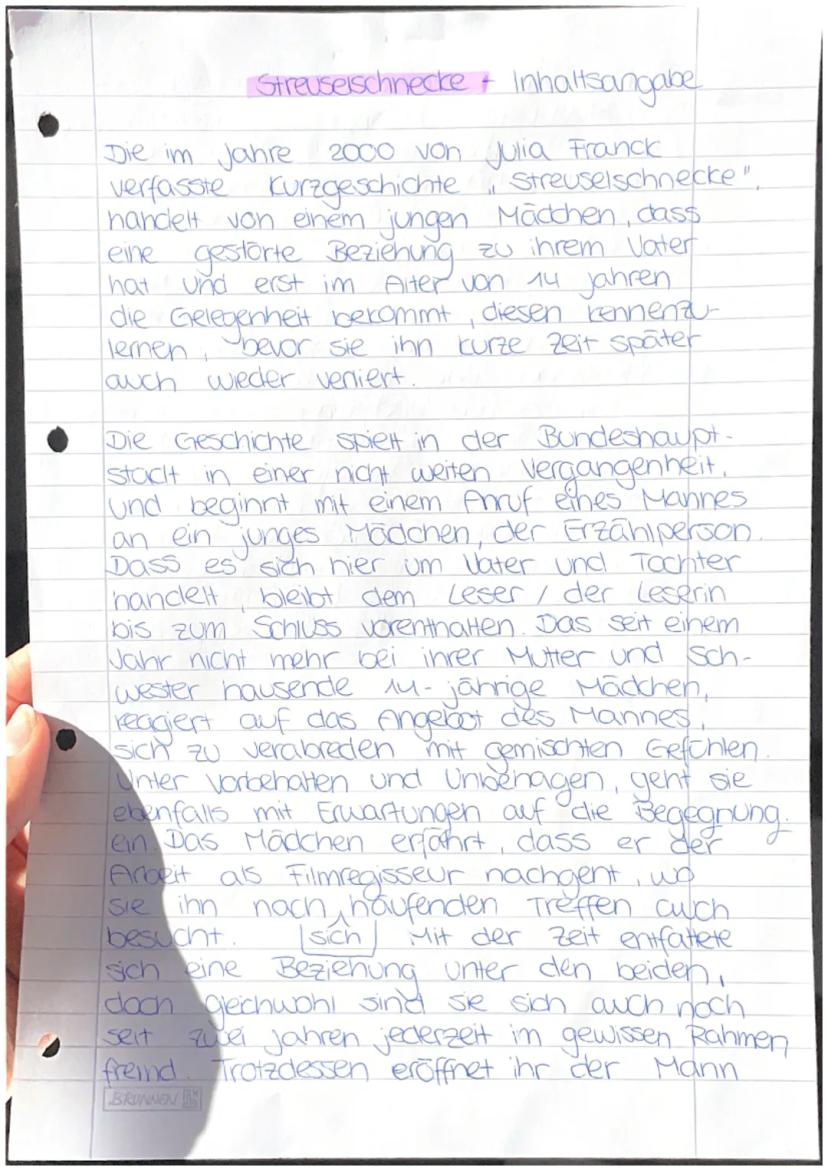 Streuselschnecke - Inhaltsangabe
Die im Jahre 2000 von Julia Franck
verfasste Kurzgeschichte „Streuselschnecke",
handelt von einem jungen Mädchen, dass
eine gestörte Beziehung zu ihrem Vater
hat und erst im Alter von 14 Jahren
die Gelegenheit bekommt, diesen kennenzu-
lernen, bevor sie ihn kurze Zeit später
auch wieder verliert.
Die Geschichte spielt in der Bundeshaupt-
stadt in einer nicht weiten Vergangenheit,
und beginnt mit einem Anruf eines Mannes
an ein junges Mädchen, der Erzählperson.
Dass es sich hier um Vater und Tochter
handelt, bleibt dem Leser / der Leserin
bis zum Schluss vorenthalten. Das seit einem
Jahr nicht mehr bei ihrer Mutter und Sch-
wester hausende 14-jährige Mädchen,
reagiert auf das Angebot des Mannes,
sich zu verabreden mit gemischten Gefühlen.
Unter Vorbehalten und Unbehagen, geht sie
ebenfalls mit Erwartungen auf die Begegnung
ein. Das Mädchen erfährt, dass er der
Arbeit als Filmregisseur nachgeht, wo
sie ihn nach häufenden Treffen auch
besucht. sich Mit der Zeit entfaltete
sich eine Beziehung unter den beiden,
doch gleichwohl sind sie sich auch noch
seit zwei Jahren jederzeit im gewissen Rahmen
fremd. Trotzdessen eröffnet ihr der Mann
BRUNNEN